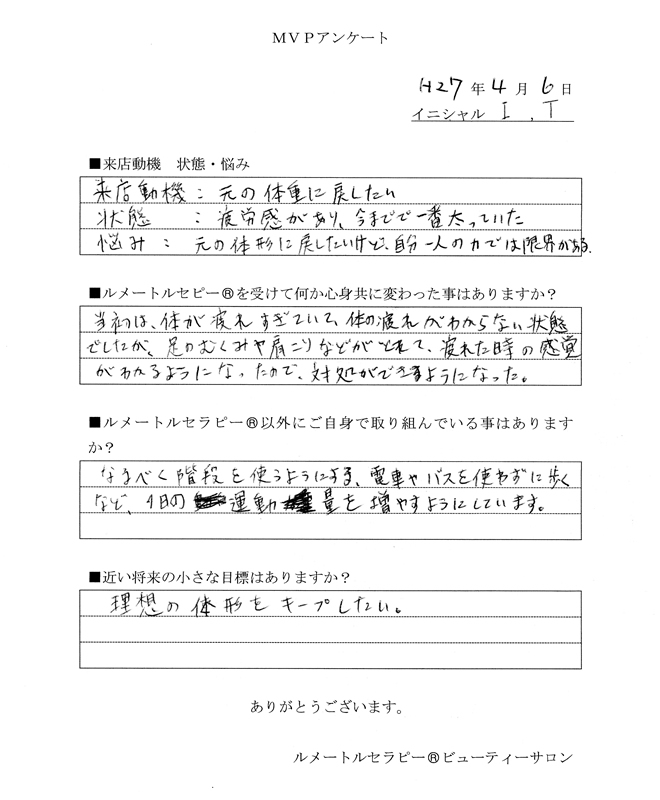 ＭＶＰアンケート
H27年4月6日
イニシャル I . T
■来店動機　状態・悩み
来店動機：元の体重に戻したい
状態　：疲労感があり、今までで一番太っていた
悩み：元の体形に戻したいけど、自分一人の力では限界がある。
■ルメートルセピー®を受けて何か心身共に変わった事はありますか？
当初は、体が疲れすぎていて、体の疲れがわからない状態
でしたが、足のむくみや肩こりなどがとれて、疲れた時の感覚
がわかるようになったので、対処ができるようになった。
■ルメートルセラピー®以外にご自身で取り組んでいる事はあります
か？
なるべく階段を使うようにする、電車やバスを使わずに歩く
など、1日の運動量を増やすようにしています。
■近い将来の小さな目標はありますか？
理想の体形をキープしたい。
ありがとうございます。
ルメートルセラピー®ビューティーサロン